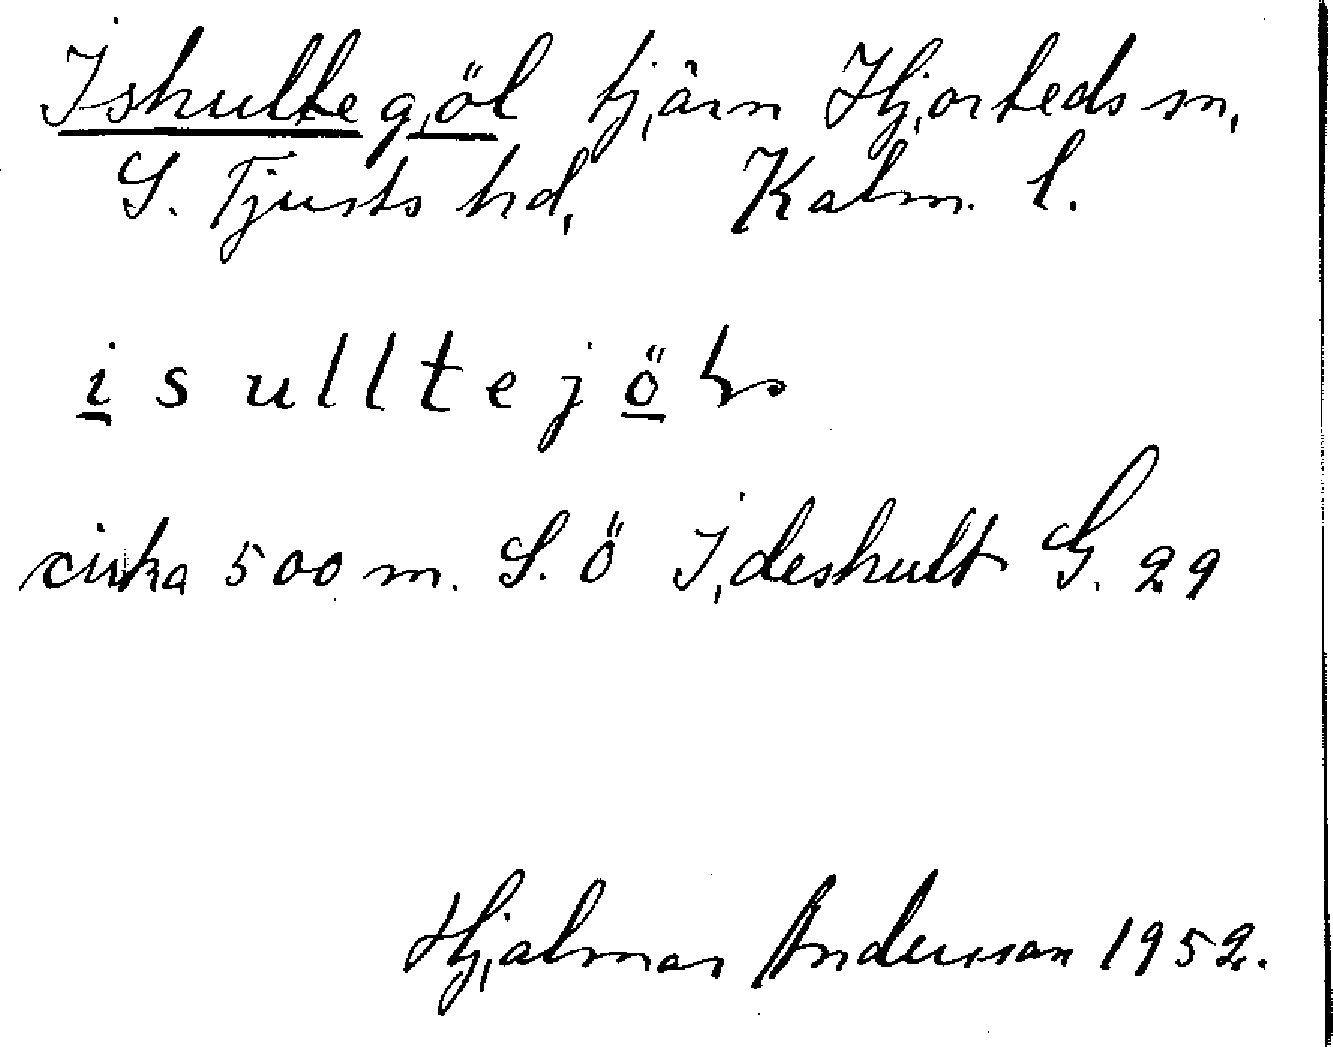 Ishultegöl tjärn Hjorteds sn,
S. Tjusts hd, Kalm. l.
isulltejö
cirka 500 m. S. Ö Ideshult G. 29
Hjalmar Andersson 1952.